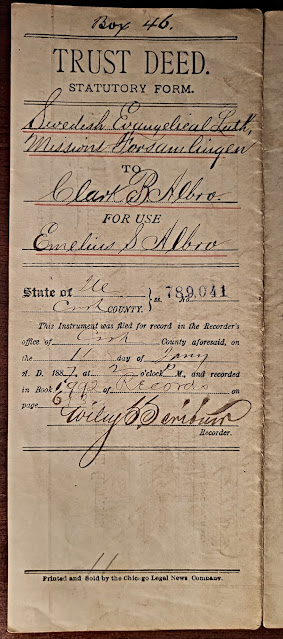 Box 46.
TRUST DEED.
STATUTORY FORM.
Swedish Evangelical Luth.
Missions Forsamlingen
TO
Clark B Albro.
FOR USE
Emelius S Albro
State of Ill
Cook COUNTY. } ss. No. 789,041
This Instrument was filed for record in the Recorder's
office of Cook County aforesaid, on
the 11 day of Jany
A. D. 1887, at 2 o'clock P M., and recorded
in Book 1992 of Records on
page
Wiley S Scribner
Recorder.
Printed and Sold by the Chicago Legal News Company.